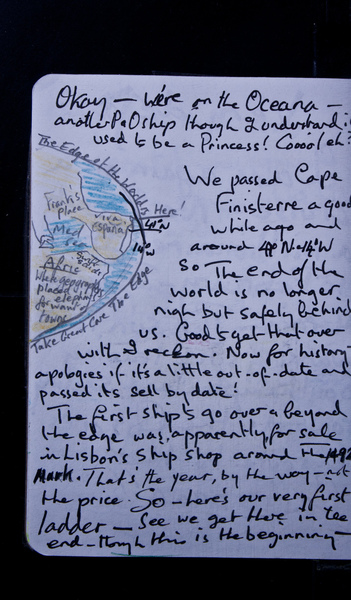 Okay — we're on the Oceana —
another P&O ship though I understand it
used to be a Princess! Coool eh?
The Edge of the World
Here!
Frank's
place
viva
españa
40°N
14°W
Med
Sea
Afric
where geography
placed
elephants
for want of
towns
Take Great Care The Edge
We passed Cape
Finisterre a good
while ago and
around 40°N-14°W
So The end of the
world is no longer
nigh but safely behind
us. Good to get that over
with I reckon. Now for history
apologies if it's a little out-of-date and
passed its sell by date!
The first ship to go over a beyond
the edge was, apparently, for sale
in Lisbon's Ship Shop around the 1492
Mark. That's the year, by the way — not
the price. So — here's our very first
ladder — See we get there in tee
end — though this is the beginning —